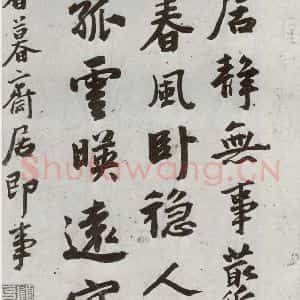 居静無事最
春風卧穏人
孤雲暎遠
春暮齋居即事
Shufawang.CN